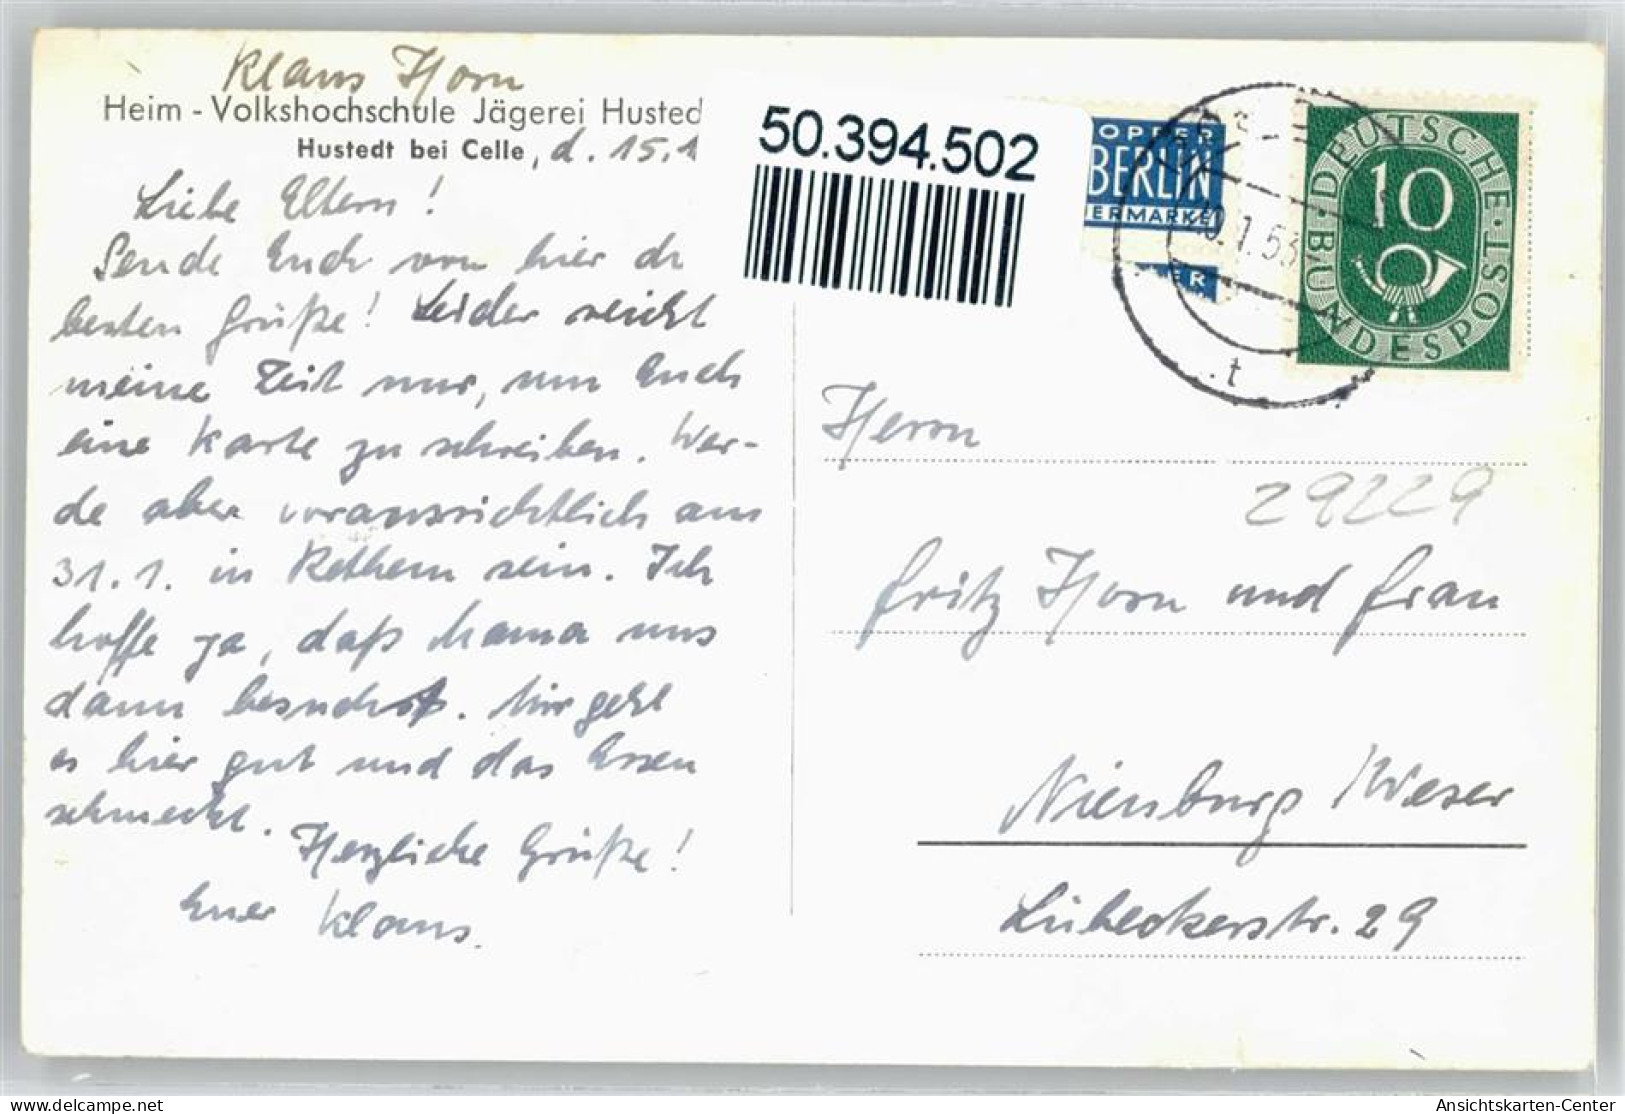 Klaus Horn
Heim - Volkshochschule Jägerei Husted
Hustedt bei Celle, d. 15.1
Liebe Eltern!
Sende Euch von hier die
besten Grüße! Leider reicht
meine Zeit nur, um Euch
eine Karte zu schreiben. Wer-
de aber voraussichtlich am
31.1. in Rethem sein. Ich
hoffe ja, daß Mama uns
dann besucht. Mir geht
es hier gut und das Essen
schmeckt.
Herzliche Grüße!
Euer Klaus.
50.394.502
OPFER
BERLIN
UERMARKE
ER
1.53
t
DEUTSCHE BUNDESPOST
10
Herrn
29229
Fritz Horn und Frau
Nienburg /Weser
Lübeckerstr. 29
www.oldthing.de
Ansichtskarten-Center